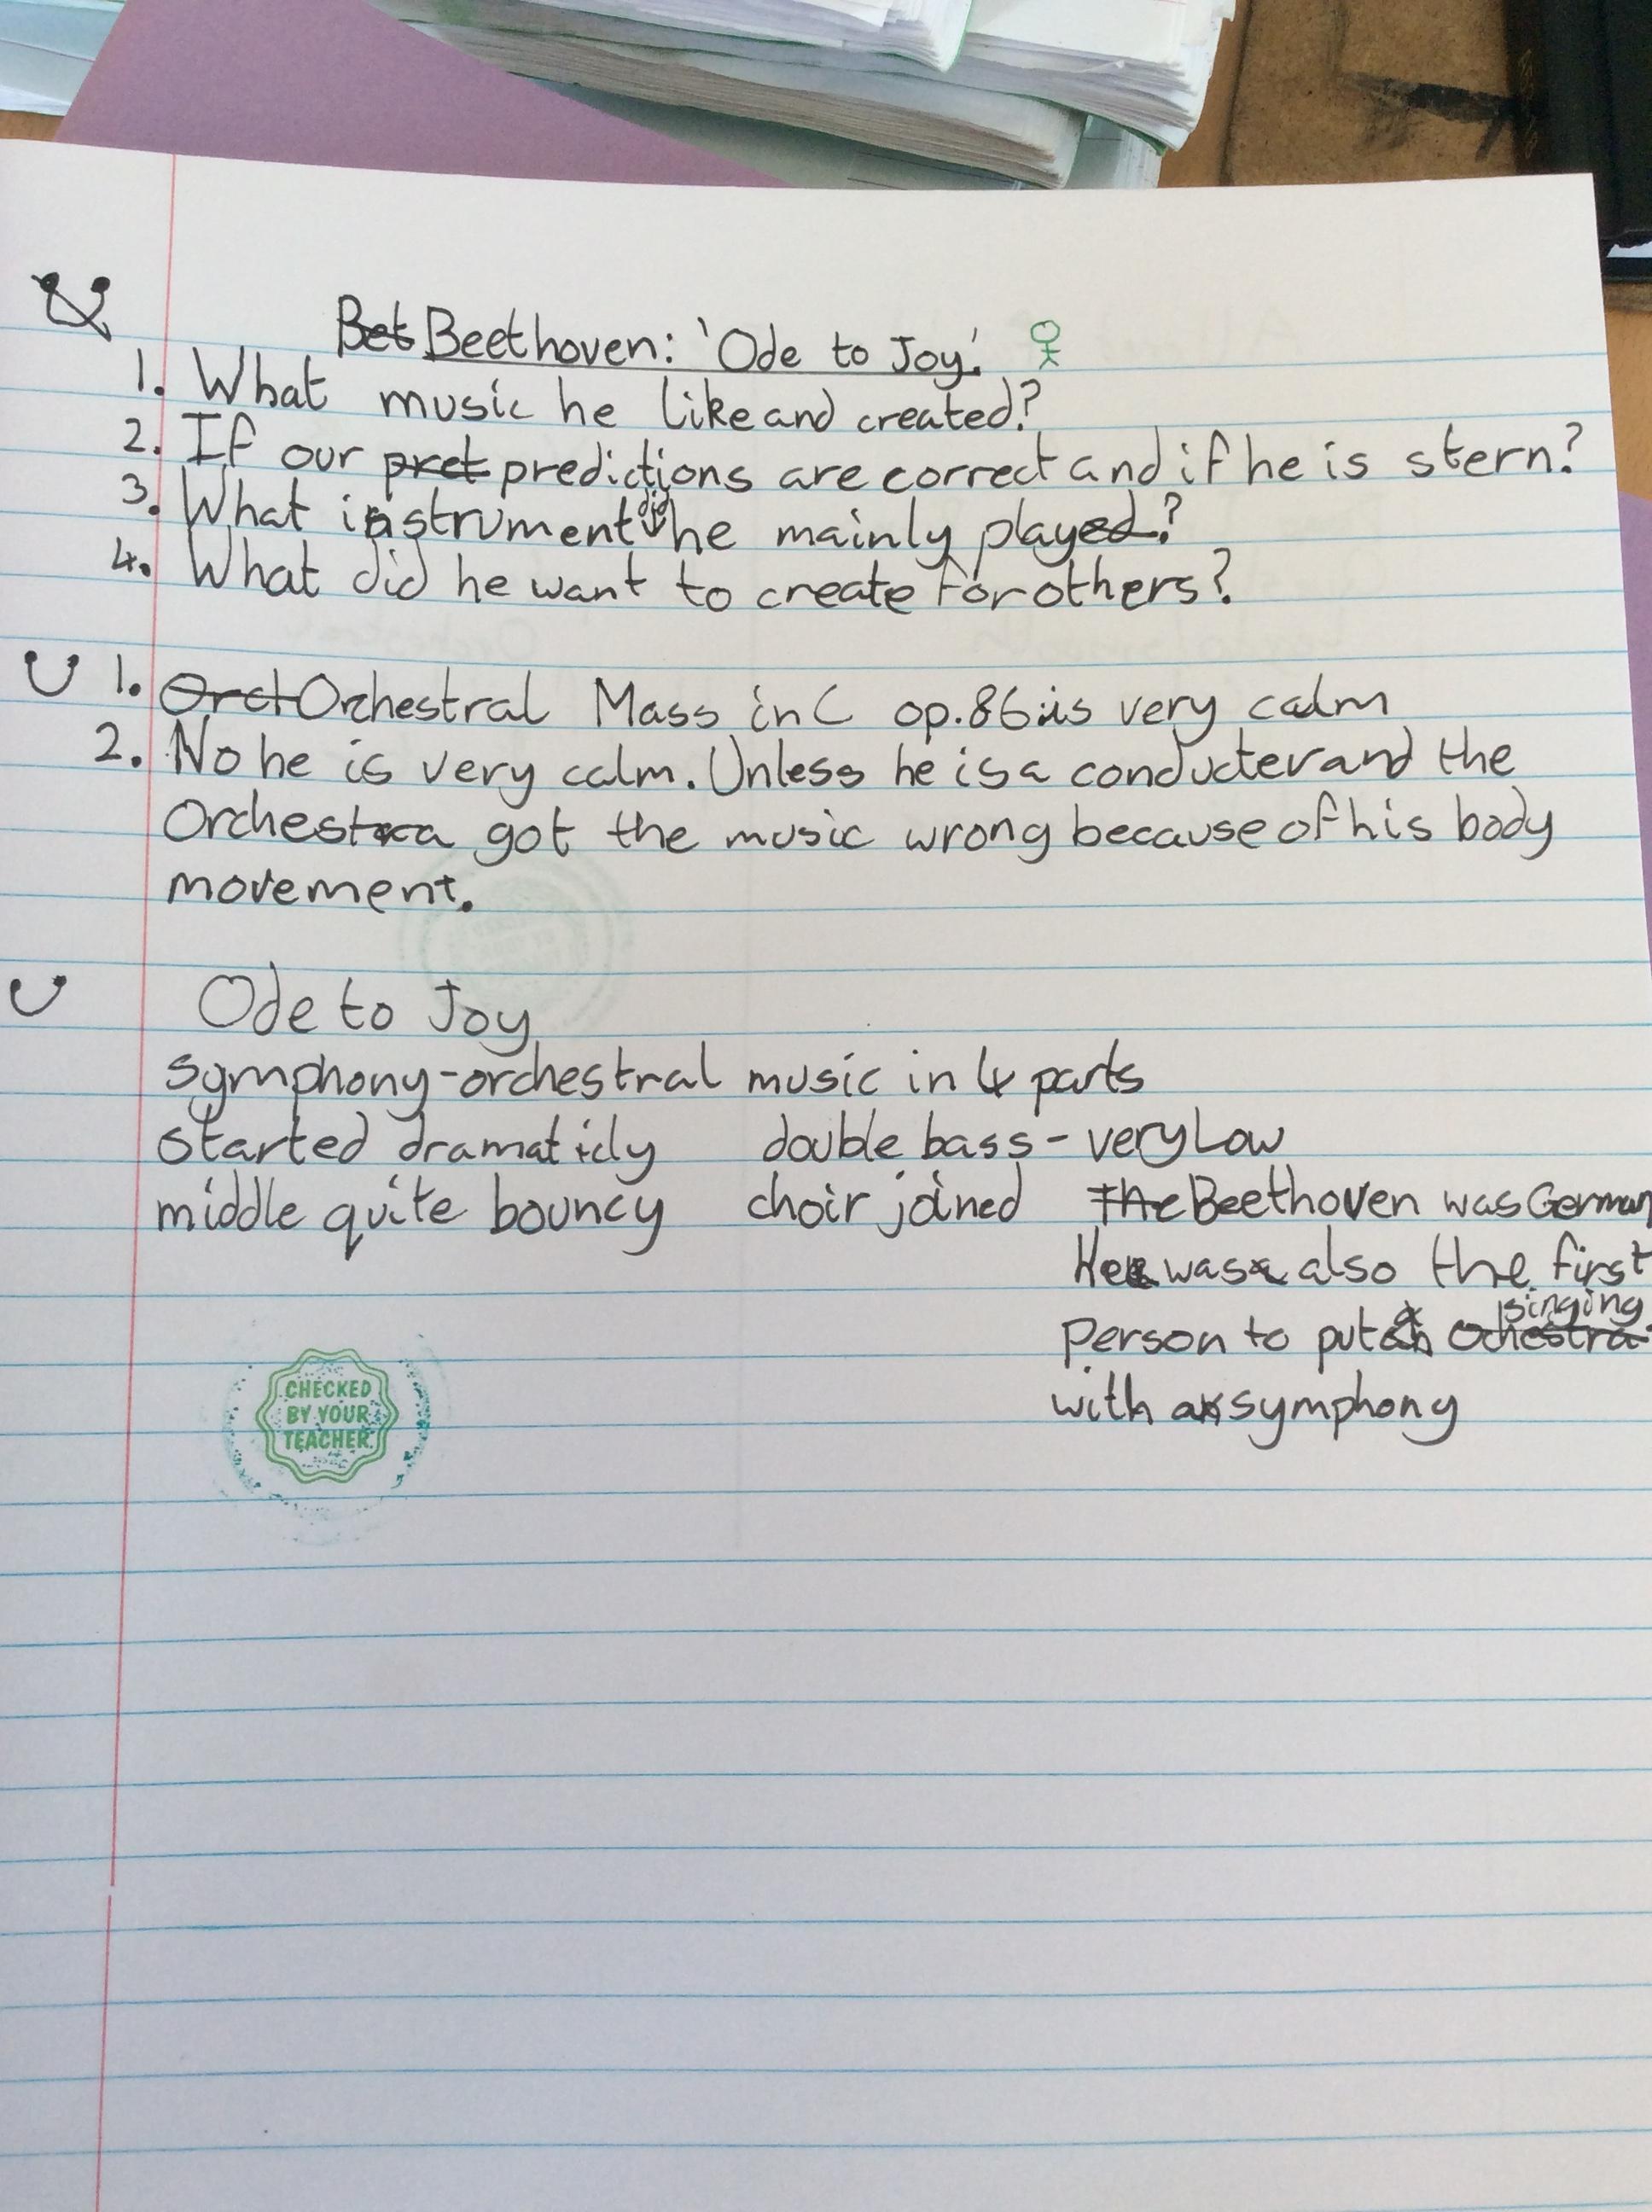 Bet Beethoven: 'Ode to Joy.'
1. What music he like and created?
2. If our pret predictions are correct and if he is stern?
3. What instrument did he mainly played?
4. What did he want to create for others?
U 1. Orct Orchestral Mass in C op.86 is very calm
2. No he is very calm. Unless he is a conducter and the
Orchestra got the music wrong because of his body
movement.
U Ode to Joy
symphony-orchestral music in 4 parts
started dramaticly double bass - very Low
middle quite bouncy choir joined The Beethoven was German
He was also the first
person to put a singing ochestra
with a symphony
CHECKED
BY YOUR
TEACHER